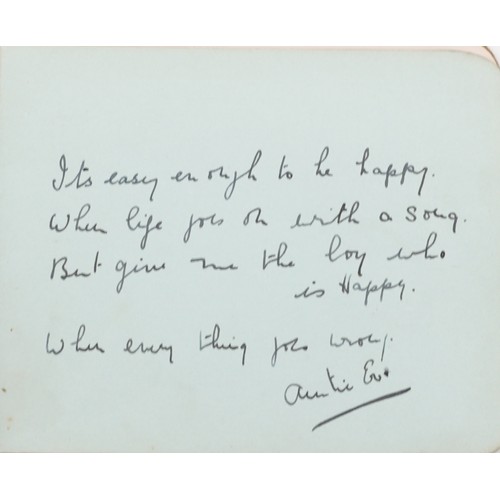 Its easy enough to be happy.
When life goes on with a song.
But give me the boy who
is Happy.
When every thing goes wrong.
Auntie Ev.